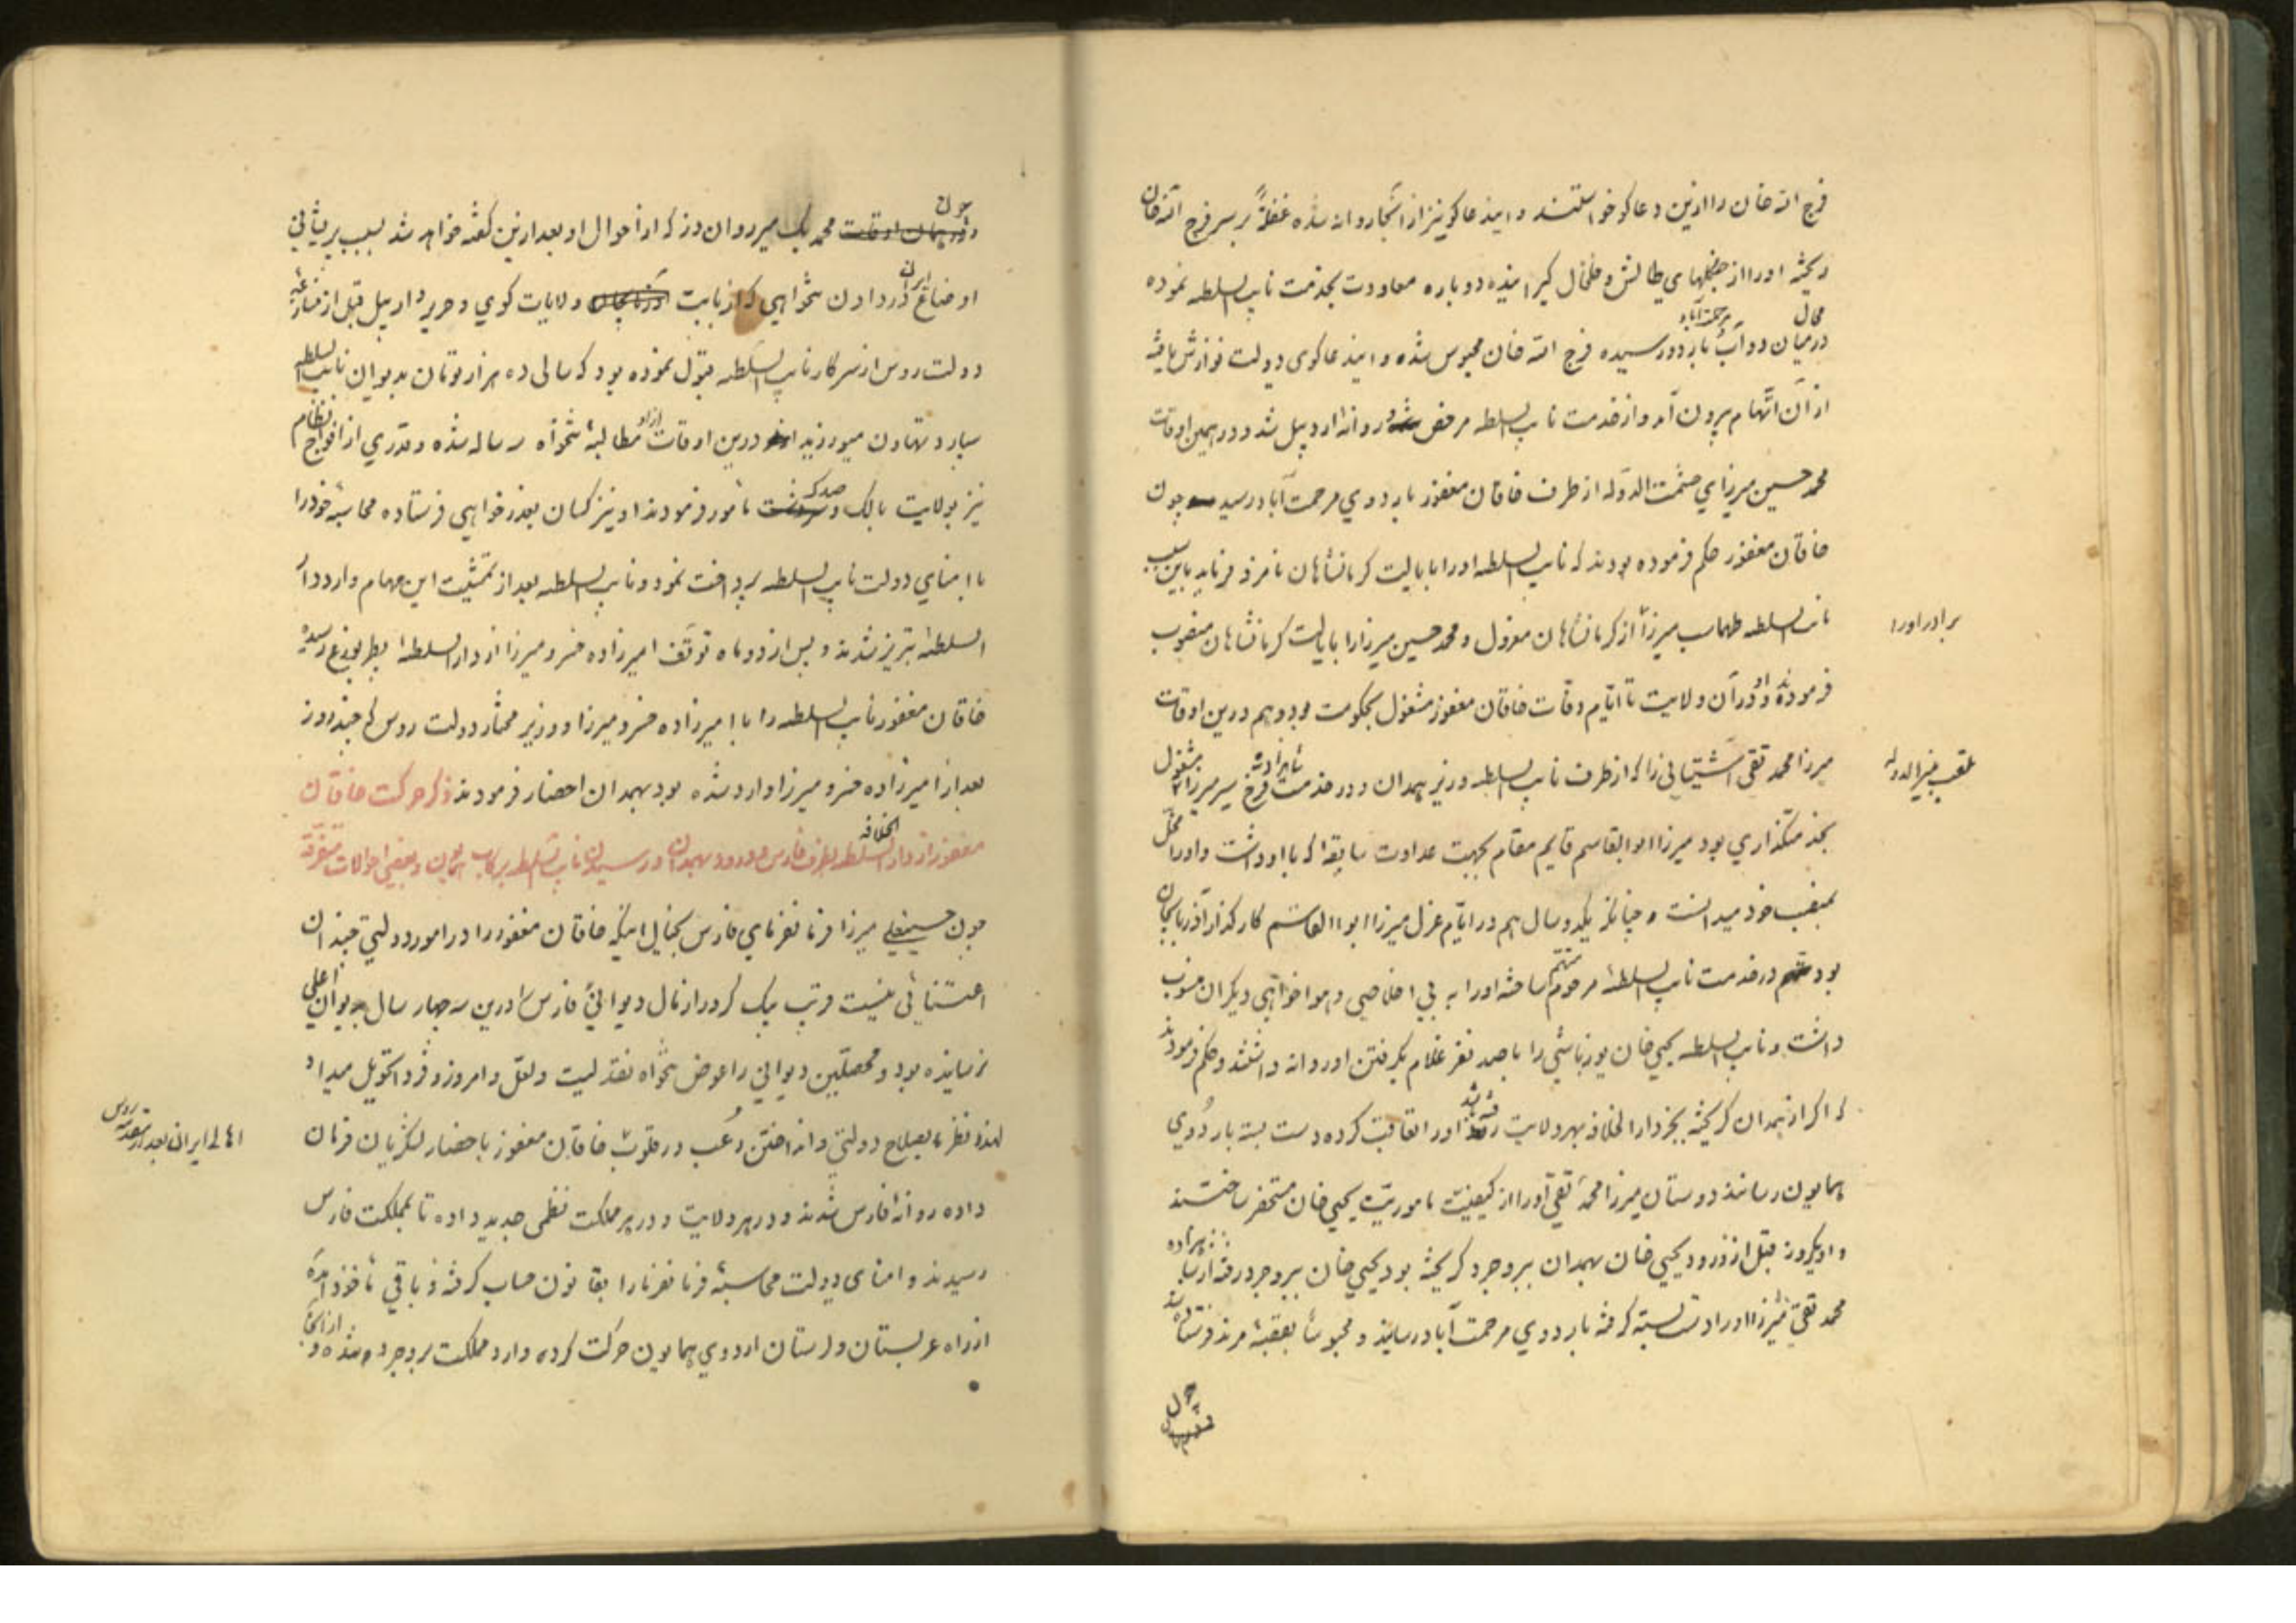 فرج الله خان را ازین دعاکو خواستند و اینداعاکو نیز از آنجا روانه شده غفلةً بر سر فرج الله خان
ریخته او را از جنکلهای طالش و خلخال کیرانیده دوباره معاودت بخدمت نایب السلطه نموده
محال مرحمت آباد
درمیان دوآب باردو رسیده فرج الله خان محبوس شده و اینداعاکوی دولت نوازش یافته
از آن اتهام بیرون آمد و از خدمت نایب السلطه مرخص و روانهٔ اردبیل شد و در همین اوقات
محمد حسین میرزای حشمت الدوله از طرف خاقان مغفور باردوی مرحمت آباد رسید چون
خاقان مغفور حکم فرموده بودند که نایب السلطه او را بایالت کرمانشاهان نامزد فرماید باین سبب
نایب السلطه طهماسب میرزا از کرمانشاهان معزول و محمد حسین میرزا را بایالت کرمانشاهان منصوب
برادر او را
فرمودند و او در آن ولایت تا ایام وفات خاقان مغفور مشغول بحکومت بود و هم درین اوقات
میرزا محمد تقی آشتیانی را که از طرف نایب السلطه وزیر همدان و در خدمت شاهزاده فرخ سیر میرزا مشغول
ملقب بنیر الدوله
بخدمتکذاری بود میرزا ابوالقاسم قایم مقام بجهت عداوت سابقه که با او داشت و او را مخل
بمنصب خود میدانست و چنانکه یکدو سال هم در ایام عزل میرزا ابوالقاسم کارکذار آذربایجان
بود در خدمت نایب السلطهٔ مرحوم متهم ساخته او را به بی اخلاصی و هواخواهی دیکران منسوب
داشت و نایب السلطه یحیی خان یوزباشی را با صد نفر غلام بکرفتن او روانه داشتند و حکم فرمودند
که اکر از همدان کریخته بجز دار الخلافه بهر ولایت رفته باشد او را تعاقب کرده دست بسته باردوی
همایون رسانند دوستان میرزا محمد تقی او را از کیفیت ماموریت یحیی خان مستحضر ساختند
و او یکروز قبل از ورود یحیی خان بهمدان ببروجرد کریخته بود یحیی خان ببروجرد رفته از شاهزاده
محمد تقی میرزا او را دست بسته کرفته باردوی مرحمت آباد رسانید و محبوساً بقصبهٔ مرند فرستادند
چون
چون
محمد بیک میر روان دز که از احوال او بعد ازین کفته خواهد شد بسبب پریشانی
اوضاع ایران در دادن تنخواهی که از بابت ولایات کوی و حریر و اربیل قبل از منازعهٔ
دولت روس از سرکار نایب السلطه قبول نموده بود که سالی ده هزار تومان بدیوان نایب السلطه
سپارد تهاون میورزید درین اوقات ازو مطالبهٔ تنخواه سه ساله شده و قدری از افواج نظام
نیز بولایت بالک و صدک مأمور فرمودند او نیز کسان بعذر خواهی فرستاده محاسبهٔ خود را
با امنای دولت نایب السلطه پرداخت نمود و نایب السلطه بعد از تمشیت این مهام وارد دار
السلطهٔ تبریز شدند و پس از دو ماه توقف امیرزاده خسرو میرزا از دار السلطهٔ پطربورغ رسیده
خاقان مغفور نایب السلطه را با امیرزاده خسرو میرزا و وزیر مختار دولت روس که چند روز
بعد از امیرزاده خسرو میرزا وارد شده بود بهمدان احضار فرمودند ذکر حرکت خاقان
مغفور از دار الخلافه بطرف فارس و ورود بهمدان و رسیدن نایب السلطه برکاب همایون و بعضی احوالات متفرقه
چون حسینعلی میرزا فرمانفرمای فارس بخیال اینکه خاقان مغفور را در امور دولتی چندان
اعتنائی نیست قریب یک کرور از مال دیوانی فارس را درین سه چهار سال بدیوان اعلی
نرسانیده بود و محصلین دیوانی را عوض تنخواه نقد لیت و لعل و امروز و فردا تحویل میداد
لهذا نظر بصلاح دولتی و انداختن رعب در قلوب خاقان مغفور باحضار لشکریان فرمان
اهالی ایران بعد از مقدمه روس
داده روانهٔ فارس شدند و در هر ولایت و در هر مملکت نظمی جدید داده تا بمملکت فارس
رسیدند و امنای دولت محاسبهٔ فرمانفرما را بقانون حساب کرفته و باقی مأخوذ آمده
از راه عربستان و لرستان اردوی همایون حرکت کرده وارد مملکت بروجرد شده و از آنجا